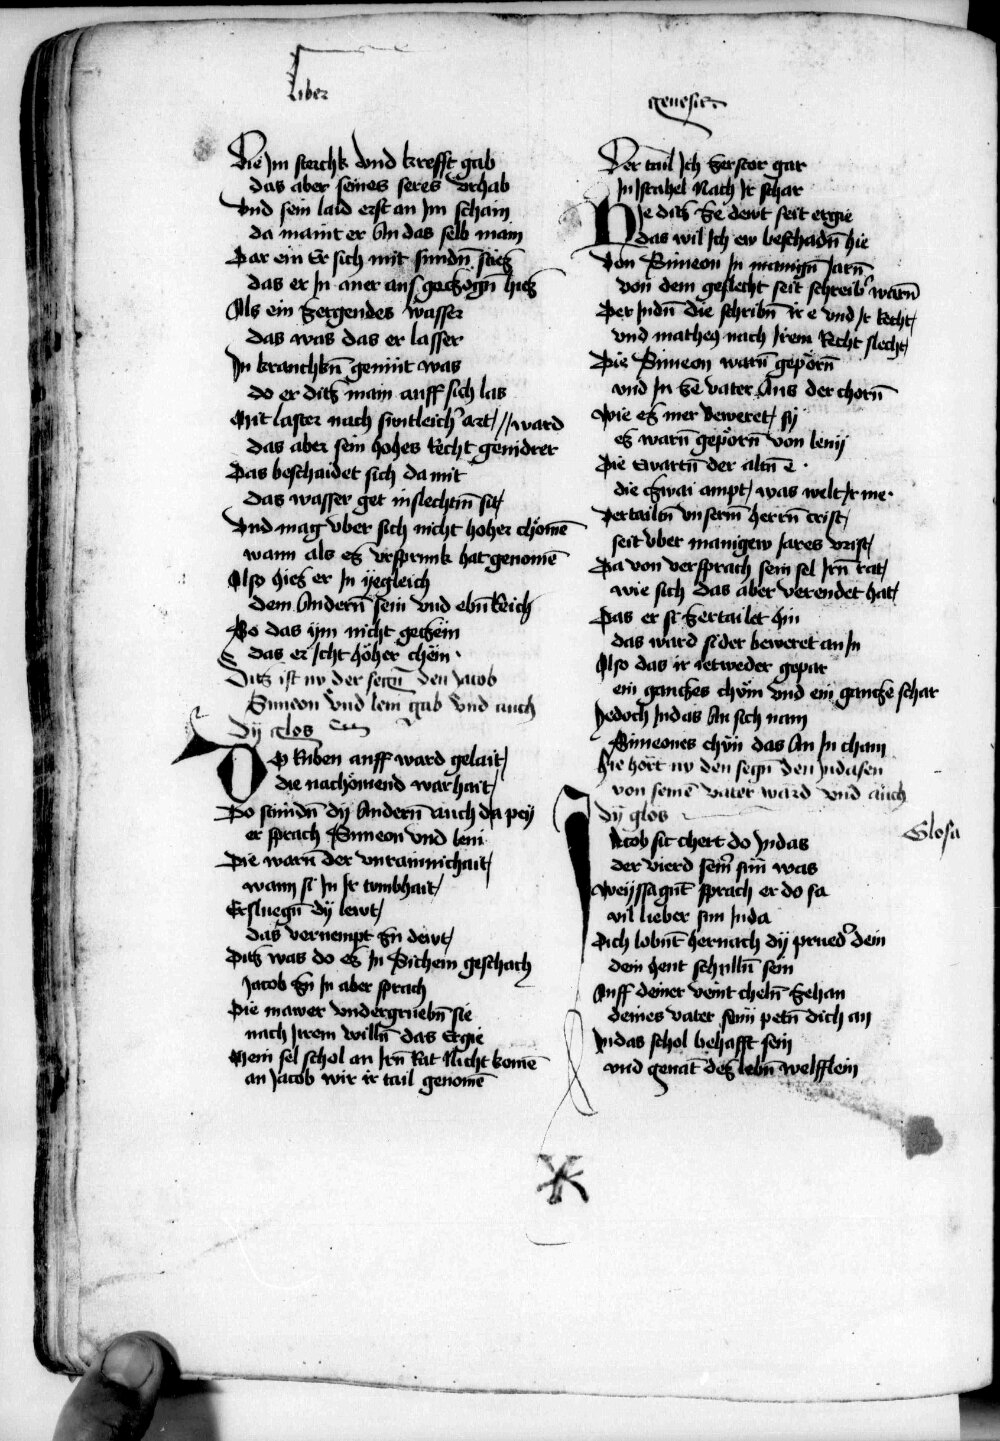 Liber
genesis
Die Im sterchk vnd krefft gab
das aber seines seres vrhab
vnd sein laid erst an Im schain
da maint er An das selb main
Dar ein Er sich mit sundn̄ stiez
das er In aner ans geczogn̄ hiez
Als ein zergendes wasser
das was das er lasser
In kranchkn̄ gemüt was
do er ditz main auff sich las
Mit laster nach sintleich' art // ward
das aber sein hohes Recht genidrer
Das beschaidet sich da mit
das wasser get inslechtm̄ sit
Vnd mag vber sich nicht hoher chömē
wann als ez vrsprunk hat genomē
Also hiez er In yegleich
dem Andern̄ sein vnd ebn̄ Reich
So das ym nicht geczem
das er Icht höher chēm
Ditz ist nv der segn̄ den Jacob
Simeon vnd leui gab vnd auch
dy glos
Do Ruben auff ward gelait
die nachömend warhait
Do stundn̄ dy Andern̄ auch da pey
er sprach Simeon vnd leui
Die warn̄ der vnrainnichait
wann si In Ir tumbhait
Ersluegn̄ dy lewt
das vernempt zu dewt
Ditz was do ez In Sichem geschach
Jacob zu In aber sprach
Die mawer vndergruebn̄ sie
nach Irem willn̄ das Ergie
Mein sel schol an Irn̄ Rat Nicht komē
an Jacob wir ir tail genomē
Der tail Ich zerstor gar
In Israhel Nach Ir schar
Hie ditz ze dewt seit ergie
das wil Ich ew beschadn̄ hie
Von Simeon In manign̄ Jarn̄
von dem geslecht seit schreib' warn̄
Der Judn̄ die schribn̄ ir e vnd Ir Recht
vnd mathes nach Irem Recht slecht
Die Simeon warn̄ geporn̄
vnd In ze vater Aus der chorn̄
Wie ez mer Beweret sy
ez warn̄ geporn̄ von leuy
Die ewartn̄ der altn̄ e
die czwai ampt was welt Ir me
Vertailtn̄ vnserm̄ herrn̄ crist
seit vber manigew Jares vrist
Da von versprach sein sel Irn̄ rat
wie sich das aber verendet hat
Das er si zertailet hin
das ward sider beweret an In
Also das ir ietweder gepar
ein ganczes chvn vnd ein gancze schar
Jedoch Judas An sich nam
Simeones chvn das An In cham
Hie hört nv den segn̄ den Judasen
von seinē vater ward vnd auch
dy glos
Glosa
Jacob sit chert do Judas
der vierd sein' sun̄ was
Weyssagūt sprach er do sa
vil lieber sun Juda
Dich lobnt hernach dy prued' dein
dein hent schulln̄ sein
Auff deiner veint cheln̄ zehan
deines vater sun petn̄ dich an
Judas schol behafft sein
vnd genāt dez lebn̄ welfflein